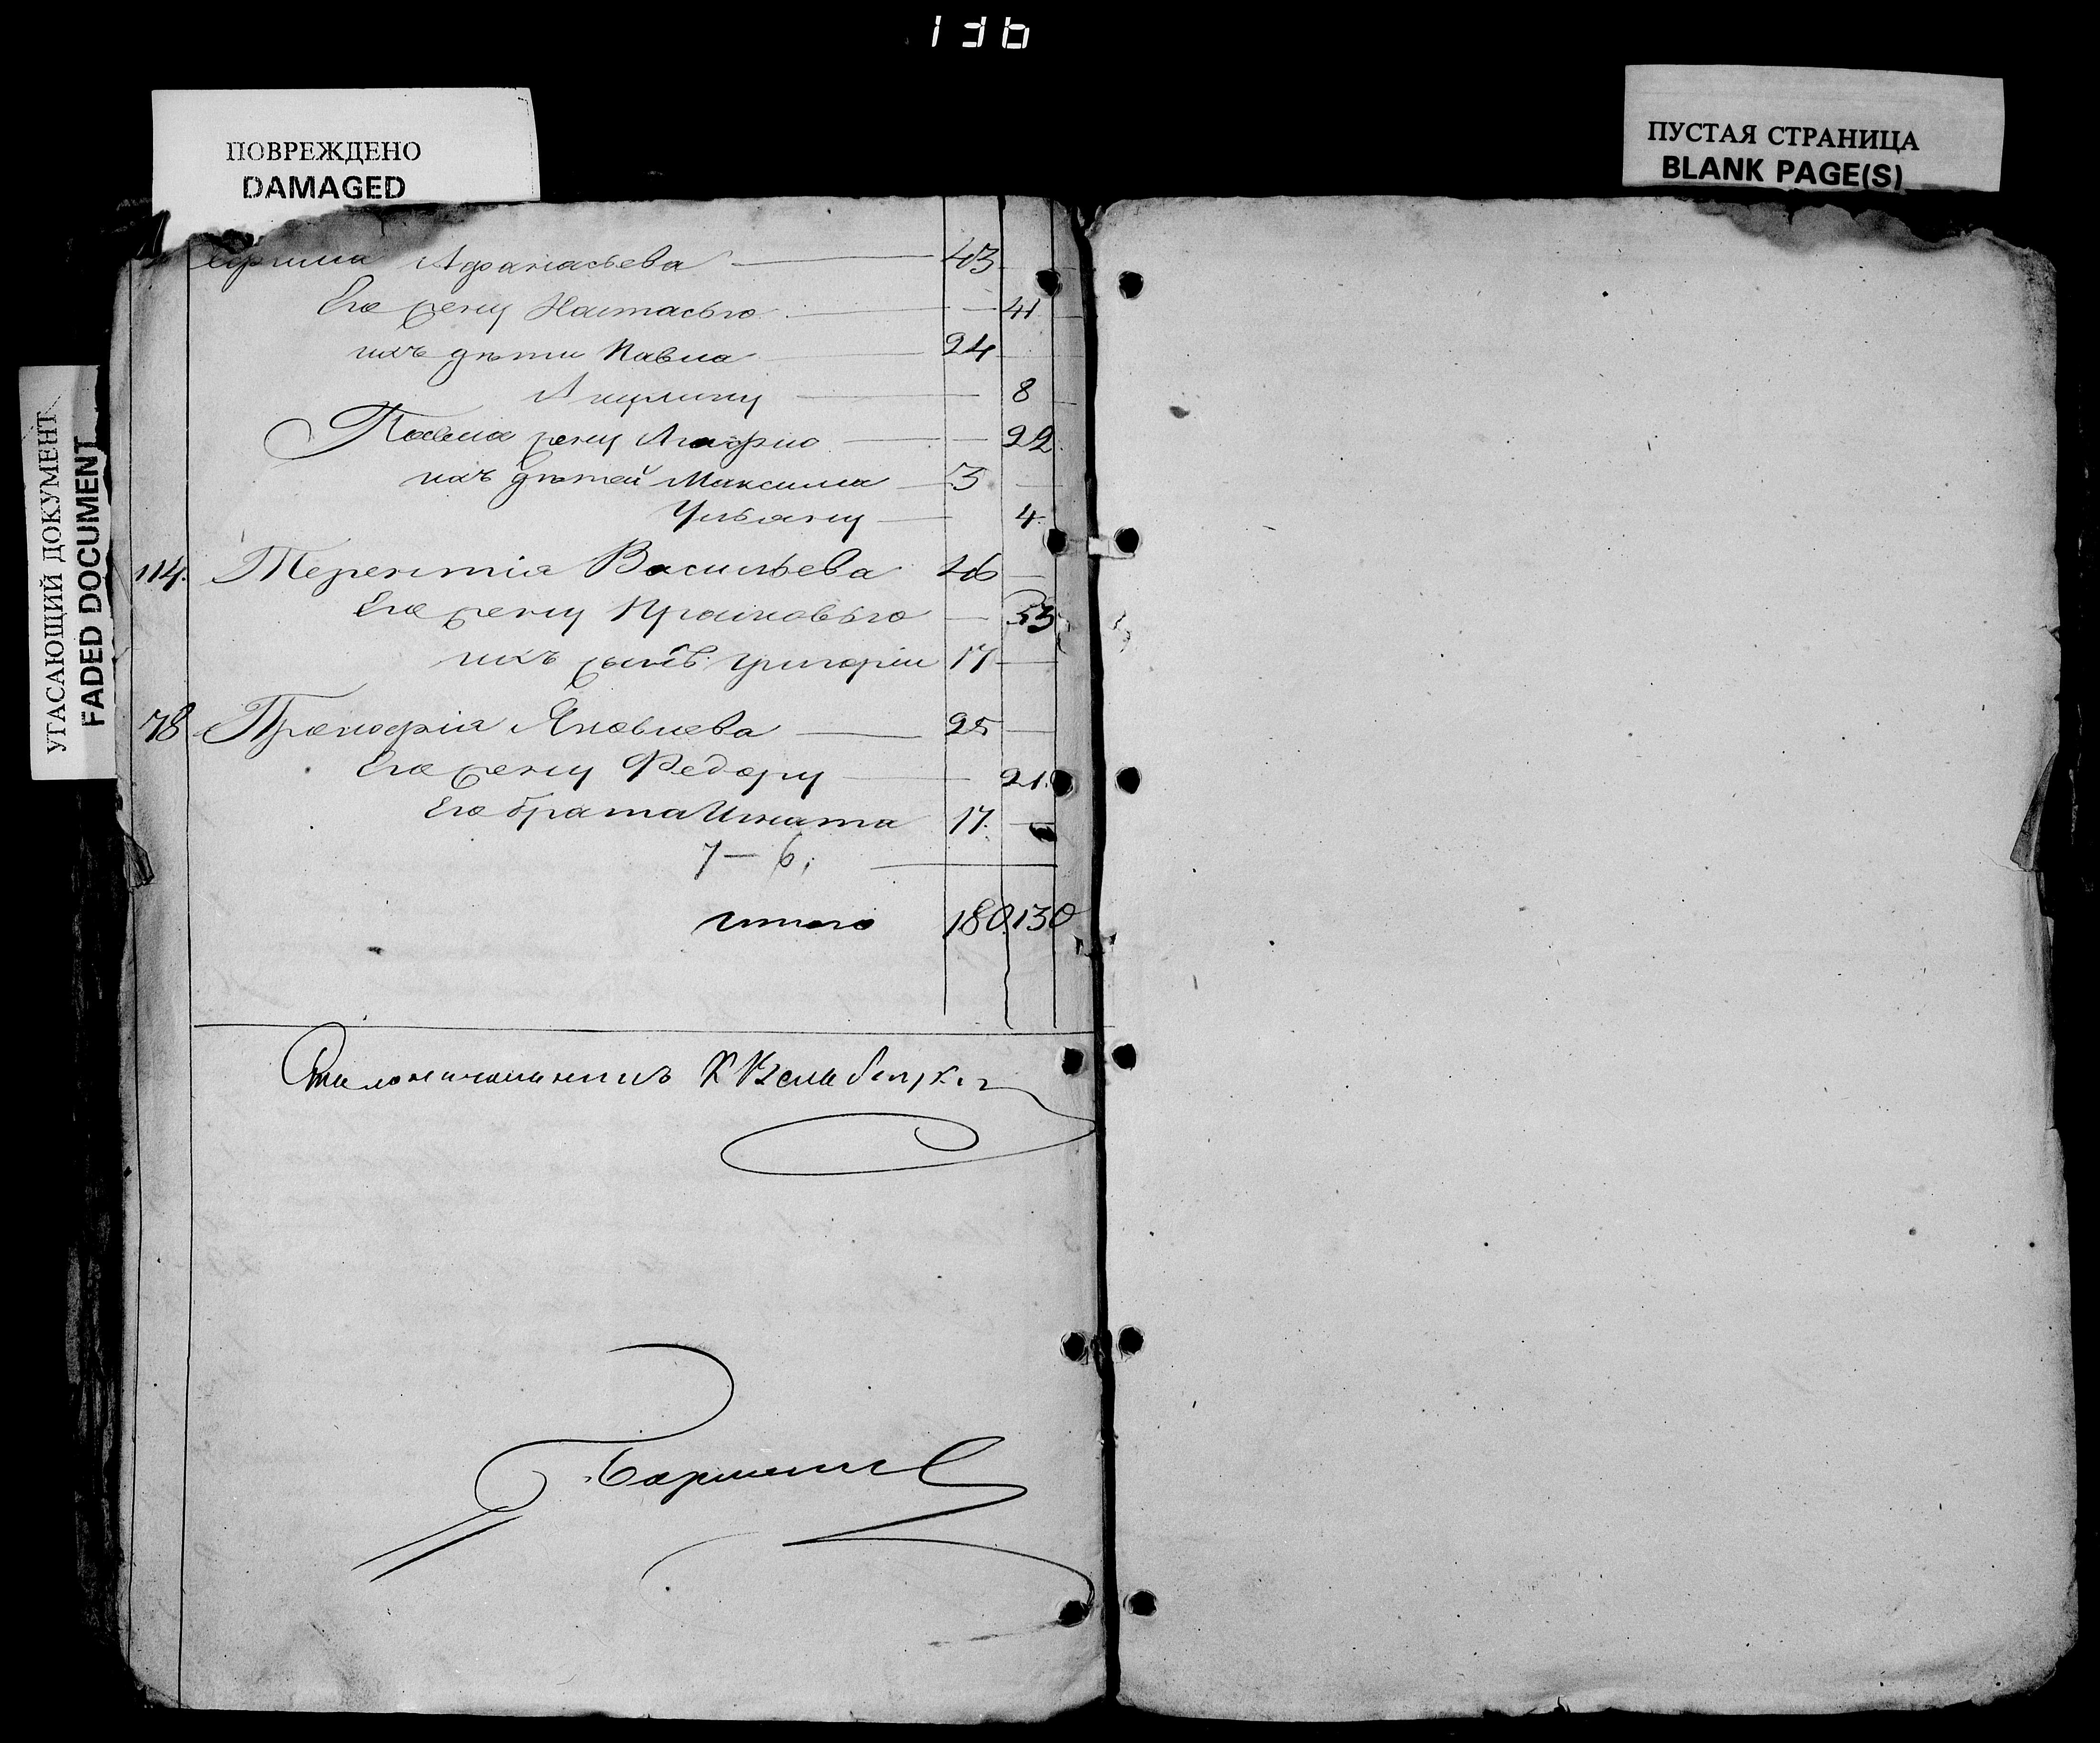 136
ПОВРЕЖДЕНО
DAMAGED
ПУСТАЯ СТРАНИЦА
BLANK PAGE(S)
УГАСАЮЩИЙ ДОКУМЕНТ
FADED DOCUMENT
Афанасьева 43
Его жену Настасью — 41
ихъ дѣти Павла 24
Акулину — 8
Павла жену Агафію — 22
ихъ дѣтей Максима 3 —
Ульяну 4
114. Терентія Васильева 46 —
Его жену Прасковью — 53
ихъ сынъ Григорій 17 —
78 Прокофія Яковлева 25 —
Его жену Федору — 21.
Его брата Игната 17. —
7 — 6.
Итого 180 130
Столоначальникъ К